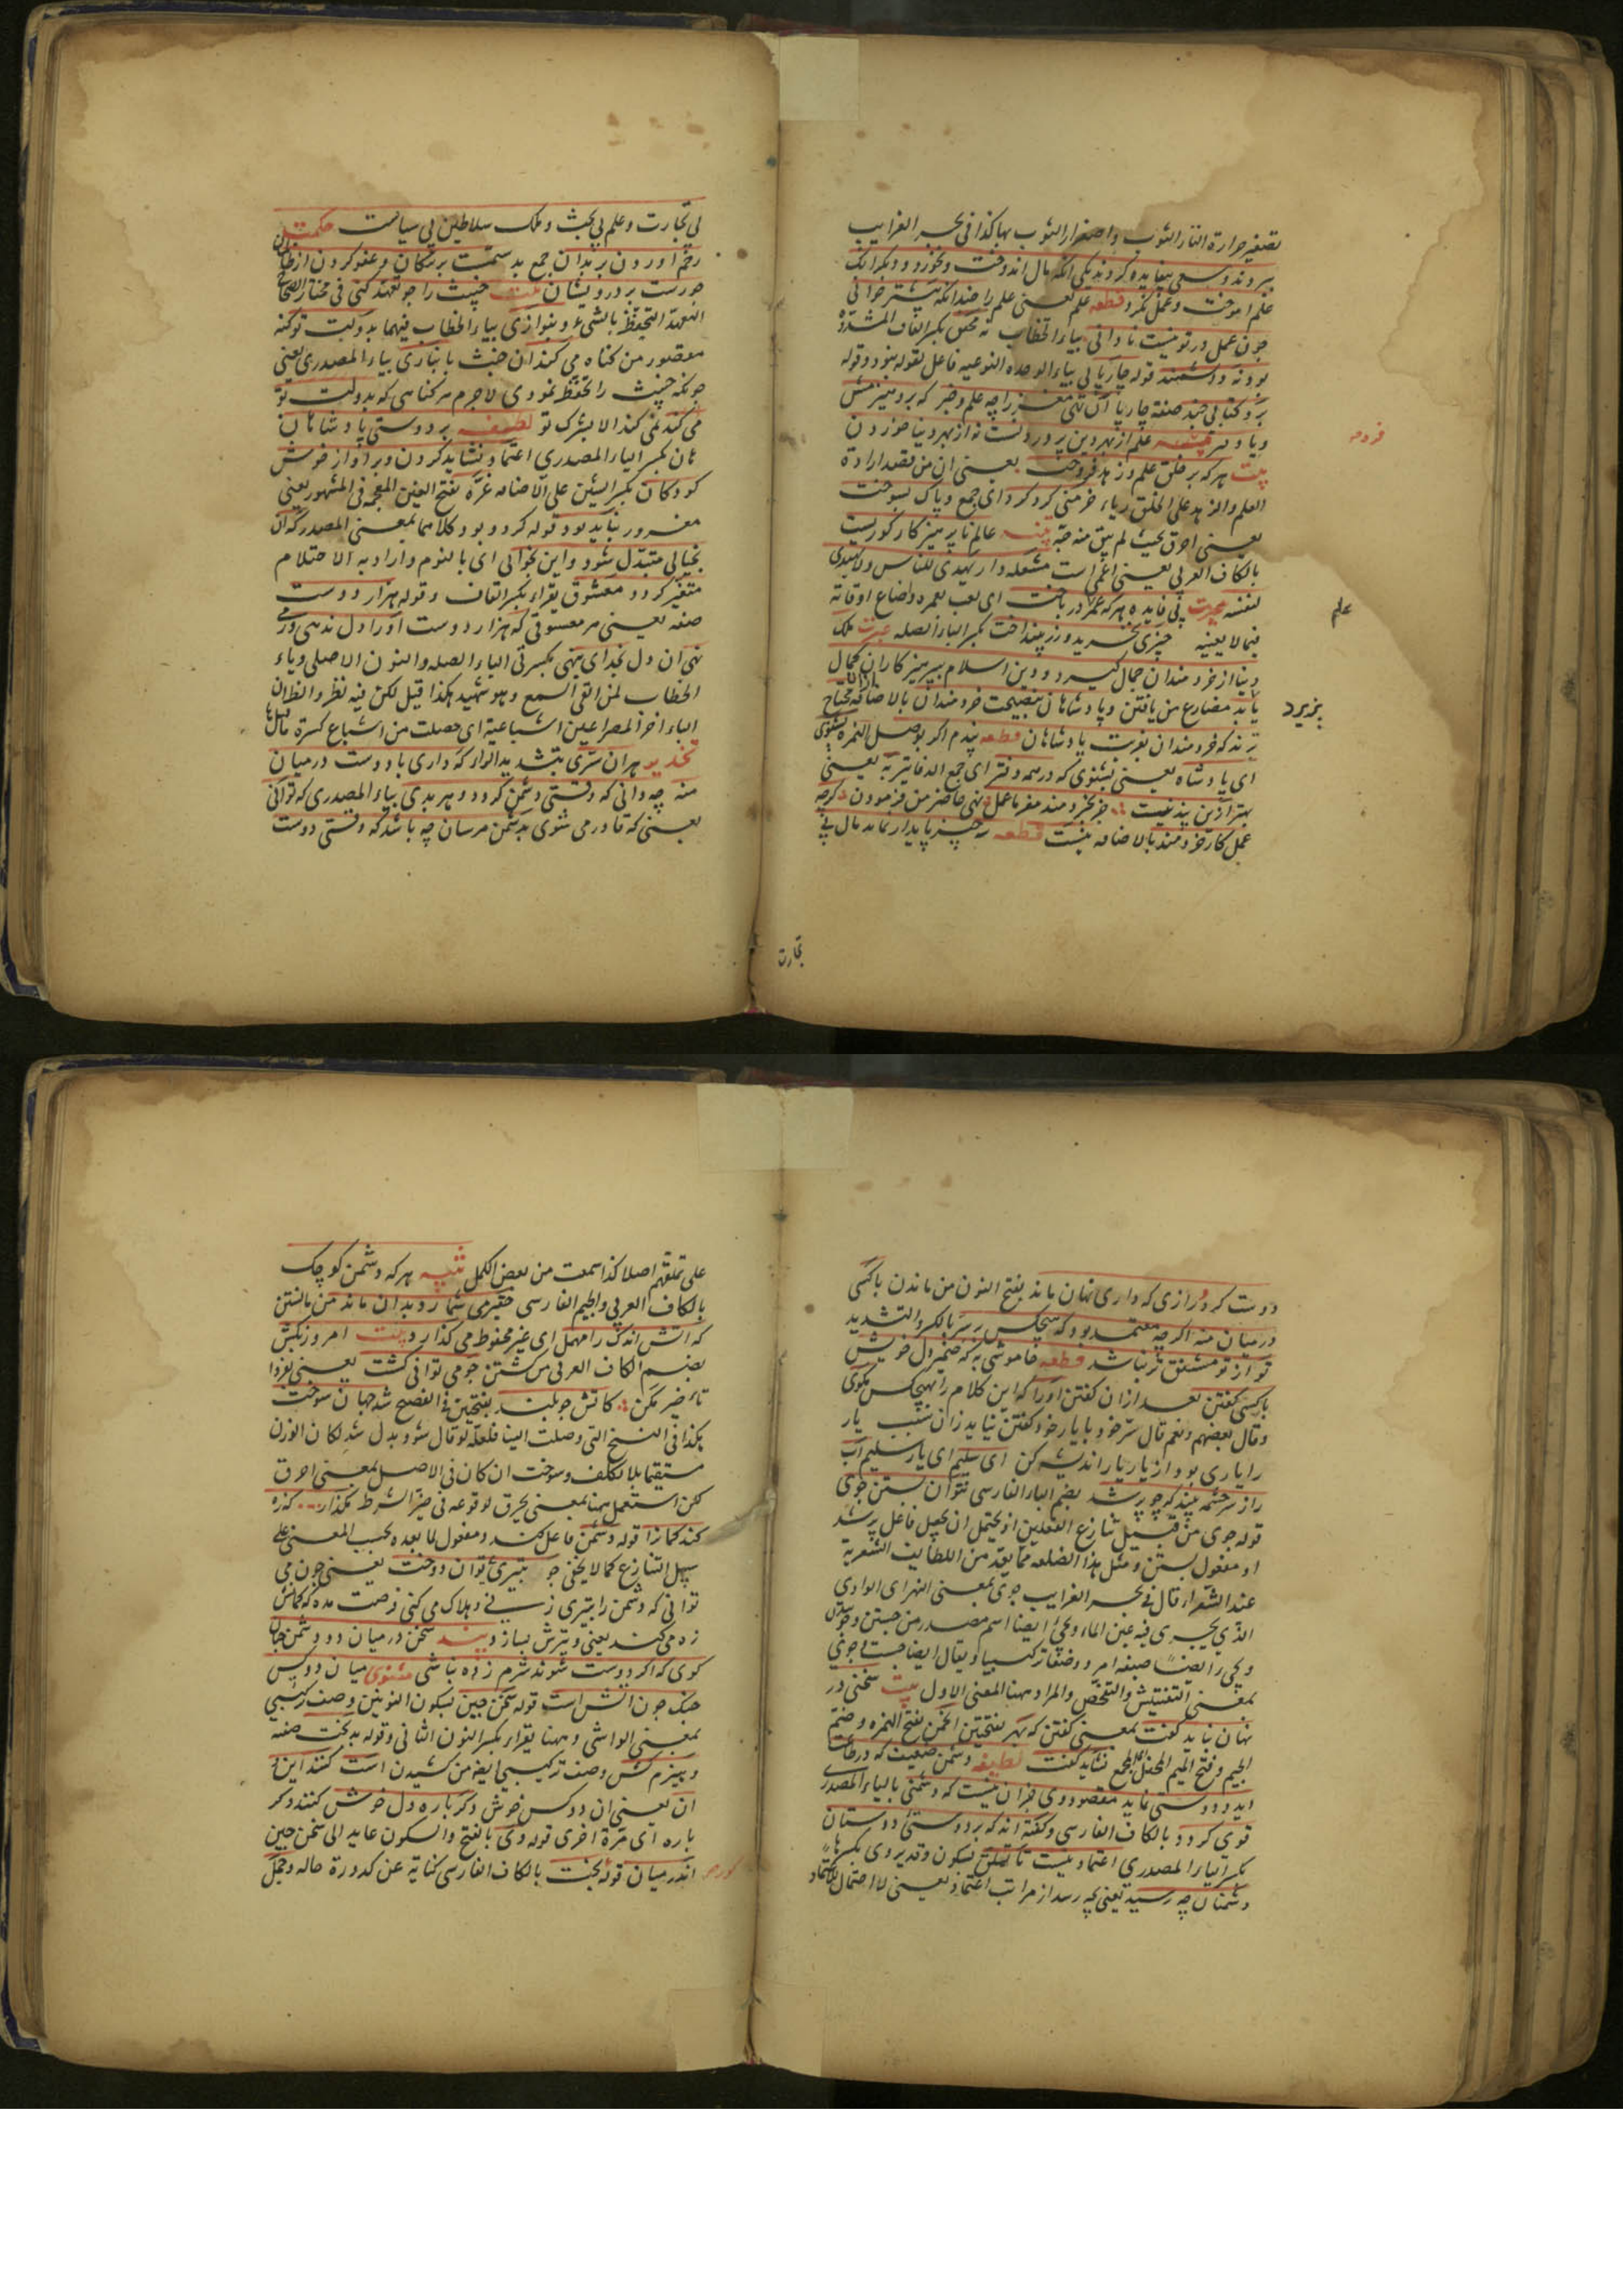 تصفير حرارة النار الثوب واصفرار الثوب بها كذا في بحر الغرايب
بيروند وسعی بیفایده کردند یکی آنکه مال اندوخت ونخورد ودیکر آنک
علم اموخت وعمل نکرد قطعه علم یعنی علم را چندانکه بیشتر خوانی
چون عمل در تو نیست نادانی بیاء الخطاب نه محقق بکسر القاف المشددة
بود نه دانشمند قوله چارپایی بیاء الوحده النوعیه فاعل لقوله بنود وقوله
برو کتابی چند صفة چارپا آن تهی مغز را چه علم وخبر که برو هیزمش
ویا دفتر علم از بهر دین پروردنست نه از بهر دنیا خوردن
بیت هرکه پرهیز وعلم وزهد فروخت یعنی ان من قصد ارادة
العلم والزهد علی الخلق ریاء خرمنی کرد کرد ای جمع وپاک بسوخت
یعنی احرق بحیث لم یبق منه حبة عالم ناپرهیزکار کوریست
بالکاف العربی یعنی اعمی است مشعله دار یهدی للناس ولا یهتدی
لنفسه بیت بی فایده هرکه عمر در باخت ای لعب بعمره واضاع اوقاته
فیما لا یعنیه چیزی نخرید وزر بینداخت بکسر الباء الصله ملک
دنیا از خردمندان جمال کیرد ودین اسلام بپرهیزکاران کمال
یابد مضارع من یافتن وپادشاهان بنصیحت خردمندان بالاضافه محتاج
ترند که خردمندان بقربت پادشاهان قطعه پندم اکر بوصل الهمزه بشنوی
ای پادشاه یعنی بشنوی که در همه دفتر ای جمع الدفاتر به یعنی
بهتر ازین پند نیست جز بخردمند مفرما عمل نهی حاضر من فرمودن کرچه
عمل کار خردمند بالاضافه نیست قطعه سه چیز پایدار نماند مال بی
علم
پزیرد
تجارت
بی تجارت وعلم بی بحث وملک سلاطین بی سیاست حکمت
رحم آوردن بر بدان جمع بد ستمست بر نیکان وعفو کردن از ظالمان
جورست بر درویشان بیت خبیث را چو تعهد کنی فی مختار الصحاح
التعهد التحفظ بالشیء وبنوازی بیاء الخطاب فیهما بدولت تو کنه
مقصور من کناه می کند ان خبث بانبازی بیاء المصدری یعنی
چونکه خبیث را تحفظ نمودی لاجرم هر کناهی که بدولت تو
می کند نمی کند الا بشرک تو لطیفه بر دوستی پادشاهان
هان بکسر الیاء المصدری اعتماد نشاید کردن وبر آواز خوش
کودکان بکسر الشین علی الاضافه غره بفتح الغین المعجمه فی المشهور یعنی
مغرور نباید بود قوله کردن وبود کلاهما بمعنی المصدر که ان
بخیالی متبدل شود واین بخوابی ای بالنوم واراد به الاحتلام
متغیر کردد معشوق یقراء بکسر القاف وقوله هزار دوست
صفه یعنی هر معشوقی که هزار دوست آورا دل ندهی ورمی
نهی ان دل بجدایی بنهی بکسرتی الباء الصله والنون الاصلی ویاء
الخطاب لمن القی السمع وهو شهید هکذا قیل لکن فیه نظر والظان
الیاء اخر المصراعین اشباعیة ای حصلت من اشباع کسرة ما قبلها
تحذیر هر ان سری بتشدید الراء که داری با دوست در میان
منه چه دانی که وقتی دشمن کردد وهر بدی بیاء المصدری که توانی
یعنی که قادر می شوی بدشمن مرسان چه باشد که وقتی دوست
دوست کردد رازی که داری نهان ماند بفتح النون من ماندن با کسی
در میان منه اکرچه معتمد بود که هیچکس بر سر بالکسر والتشدید
تو از تو مشفق تر نباشد قطعه خاموشی به که ضمیر دل خویش
با کسی کفتن بعد از ان کفتن اورا که این کلام را بهیچکس مکوی
وقال بعضهم ونعم قال سر خود با یار خود کفتن نیاید زان سبب یار
را یاری بود از یار یار اندیشه کن ای سلیم ای یار سلیم آب
راز سرچشمه ببند که چو پر شد بضم الباء الفارسی نتوان بستن جوی
قوله جوی من قبیل تنازع الفعلین اذ یحتمل ان یجعل فاعل پر شد
او مفعول بستن ومثل هذا الصنعه مما یعد من اللطایف الشعریة
عند الشعراء قال فی بحر الغرایب جوی بمعنی النهر ای الوادی
الذی یجری فیه عین الماء ویجیء ایضا اسم مصدر من جستن وجوییدن
ویجیء ایضا صیغه امر ووصفا ترکیبیا ویقال ایضا جست وجوی
بمعنی التفتیش والتفحص والمراد ههنا المعنی الاول بیت سخنی در
نهان نباید کفت بمعنی کفتن که بهر بفتحتین انجمن بفتح الهمزه وضم
الجیم وفتح المیم المحفل الجمع نشاید کفت لطیفه دشمن ضعیف که در طاعت
اید ودوستی نماید مقصود وی جز ان نیست که دشمنی بالیاء المصدر
قوی کردد بالکاف الفارسی وکفته اند که بر دوستی دوستان
بکسر الیاء المصدری اعتماد نیست تا بتملق بسکون وقد یروی بکسرها
دشمنان چه رسد یعنی چه رسد از مراتب اعتماد یعنی لا احتمال للاعتماد
علی تملقهم اصلا کذا سمعت من بعض الکمل تنبیه هرکه دشمن کوچک
بالکاف العربی والجیم الفارسی حقیر می شمارد بدان ماند من مانستن
که اتش اندک را مهمل ای غیر محفوظ می کذارد بیت امروز بکش
بضم الکاف العربی من کشتن چو می توانی کشت یعنی بفردا
تاخیر مکن کاتش چو بلند بفتحتین فی الفصیح شد جهان سوخت
هکذا فی النسخ التی وصلت الینا فلعله لو قال شود بدل شد لکان الوزن
مستقیما بلا تکلف وسوخت ان کان فی الاصل بمعنی احرق
لکن استعمل ههنا بمعنی یحرق لوقوعه فی حیز الشرط مکذار که زه
کند کمان را قوله دشمن فاعل کند ومفعول لما بعده بحسب المعنی علی
سبیل التنازع کما لا یخفی چو بتیری توان دوخت یعنی چون می
توانی که دشمن را بتیری زنی وهلاک می کنی فرصت مده که کمانش
زه می کند یعنی وتیرش بسازد پند سخن در میان دو دشمن چنان
کوی که اکر دوست شوند شرم زده نباشی مثنوی میان دو کس
جنک چون آتش است قوله سخن چین بسکون النونین وصف ترکیبی
بمعنی الواشی وههنا یقراء بکسر النون الثانی وقوله بدبخت صفه
وهیزم کش وصف ترکیبی ایضا من کشیدن است کنند این و
ان یعنی ان دو کس خوش دکر باره دل خوش کنند دکر
باره ای مرة اخری قوله وی بالفتح والسکون عاید الی سخن چین
اندر میان قوله بخت بالکاف الفارسی کنایة عن کدورة حاله وخجل